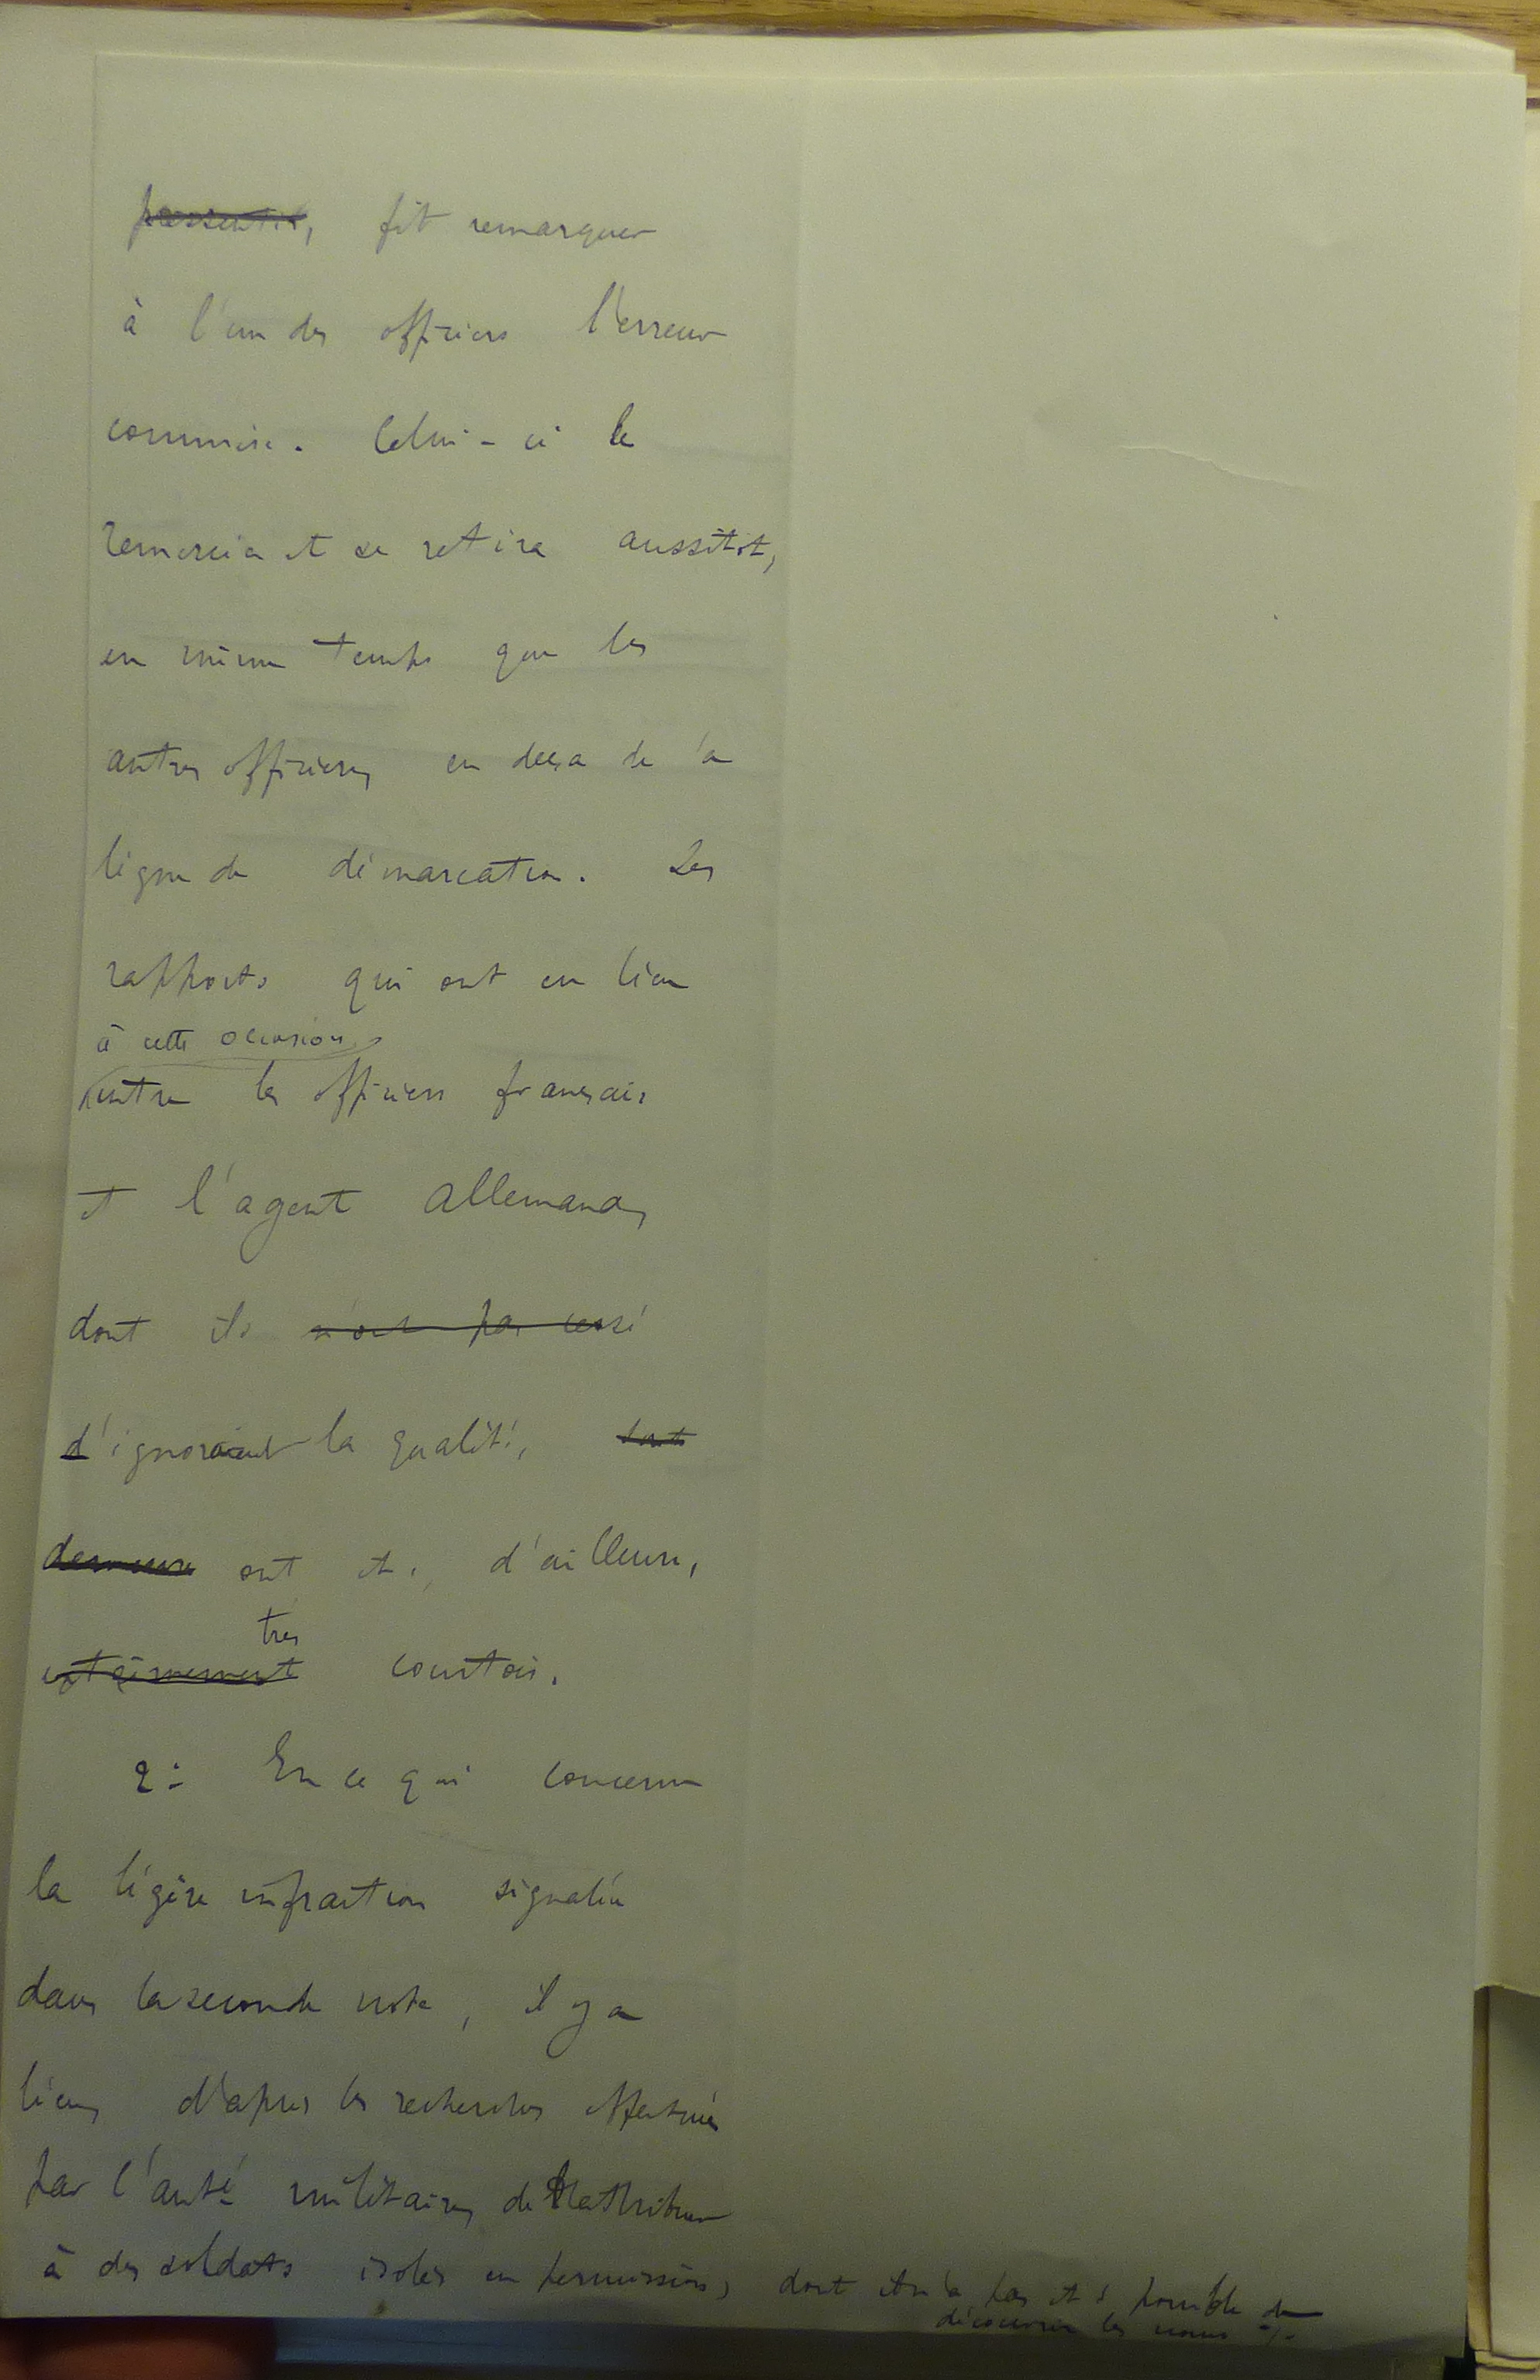 pressentit, fit remarquer
à l'un des officiers l'erreur
commise. Celui-ci le
remercia et se retira aussitôt,
en même temps que les
autres officiers, en deça de la
ligne de démarcation. Les
rapports qui ont eu lieu
à cette occasion
entre les officiers français
et l'agent allemand,
dont ils n'ont pas cessé
d'ignoraient la qualité, sont
demeurés ont été, d'ailleurs,
très
extrêmement courtois.
2: En ce qui concerne
la légère infraction signalée
dans la seconde note, il y a
lieu, d'après les recherches effectuées
par l'auté militaire, de l'attribuer
à des soldats isolés en permission, dont il n'a pas été possible de
découvrir les noms ./.